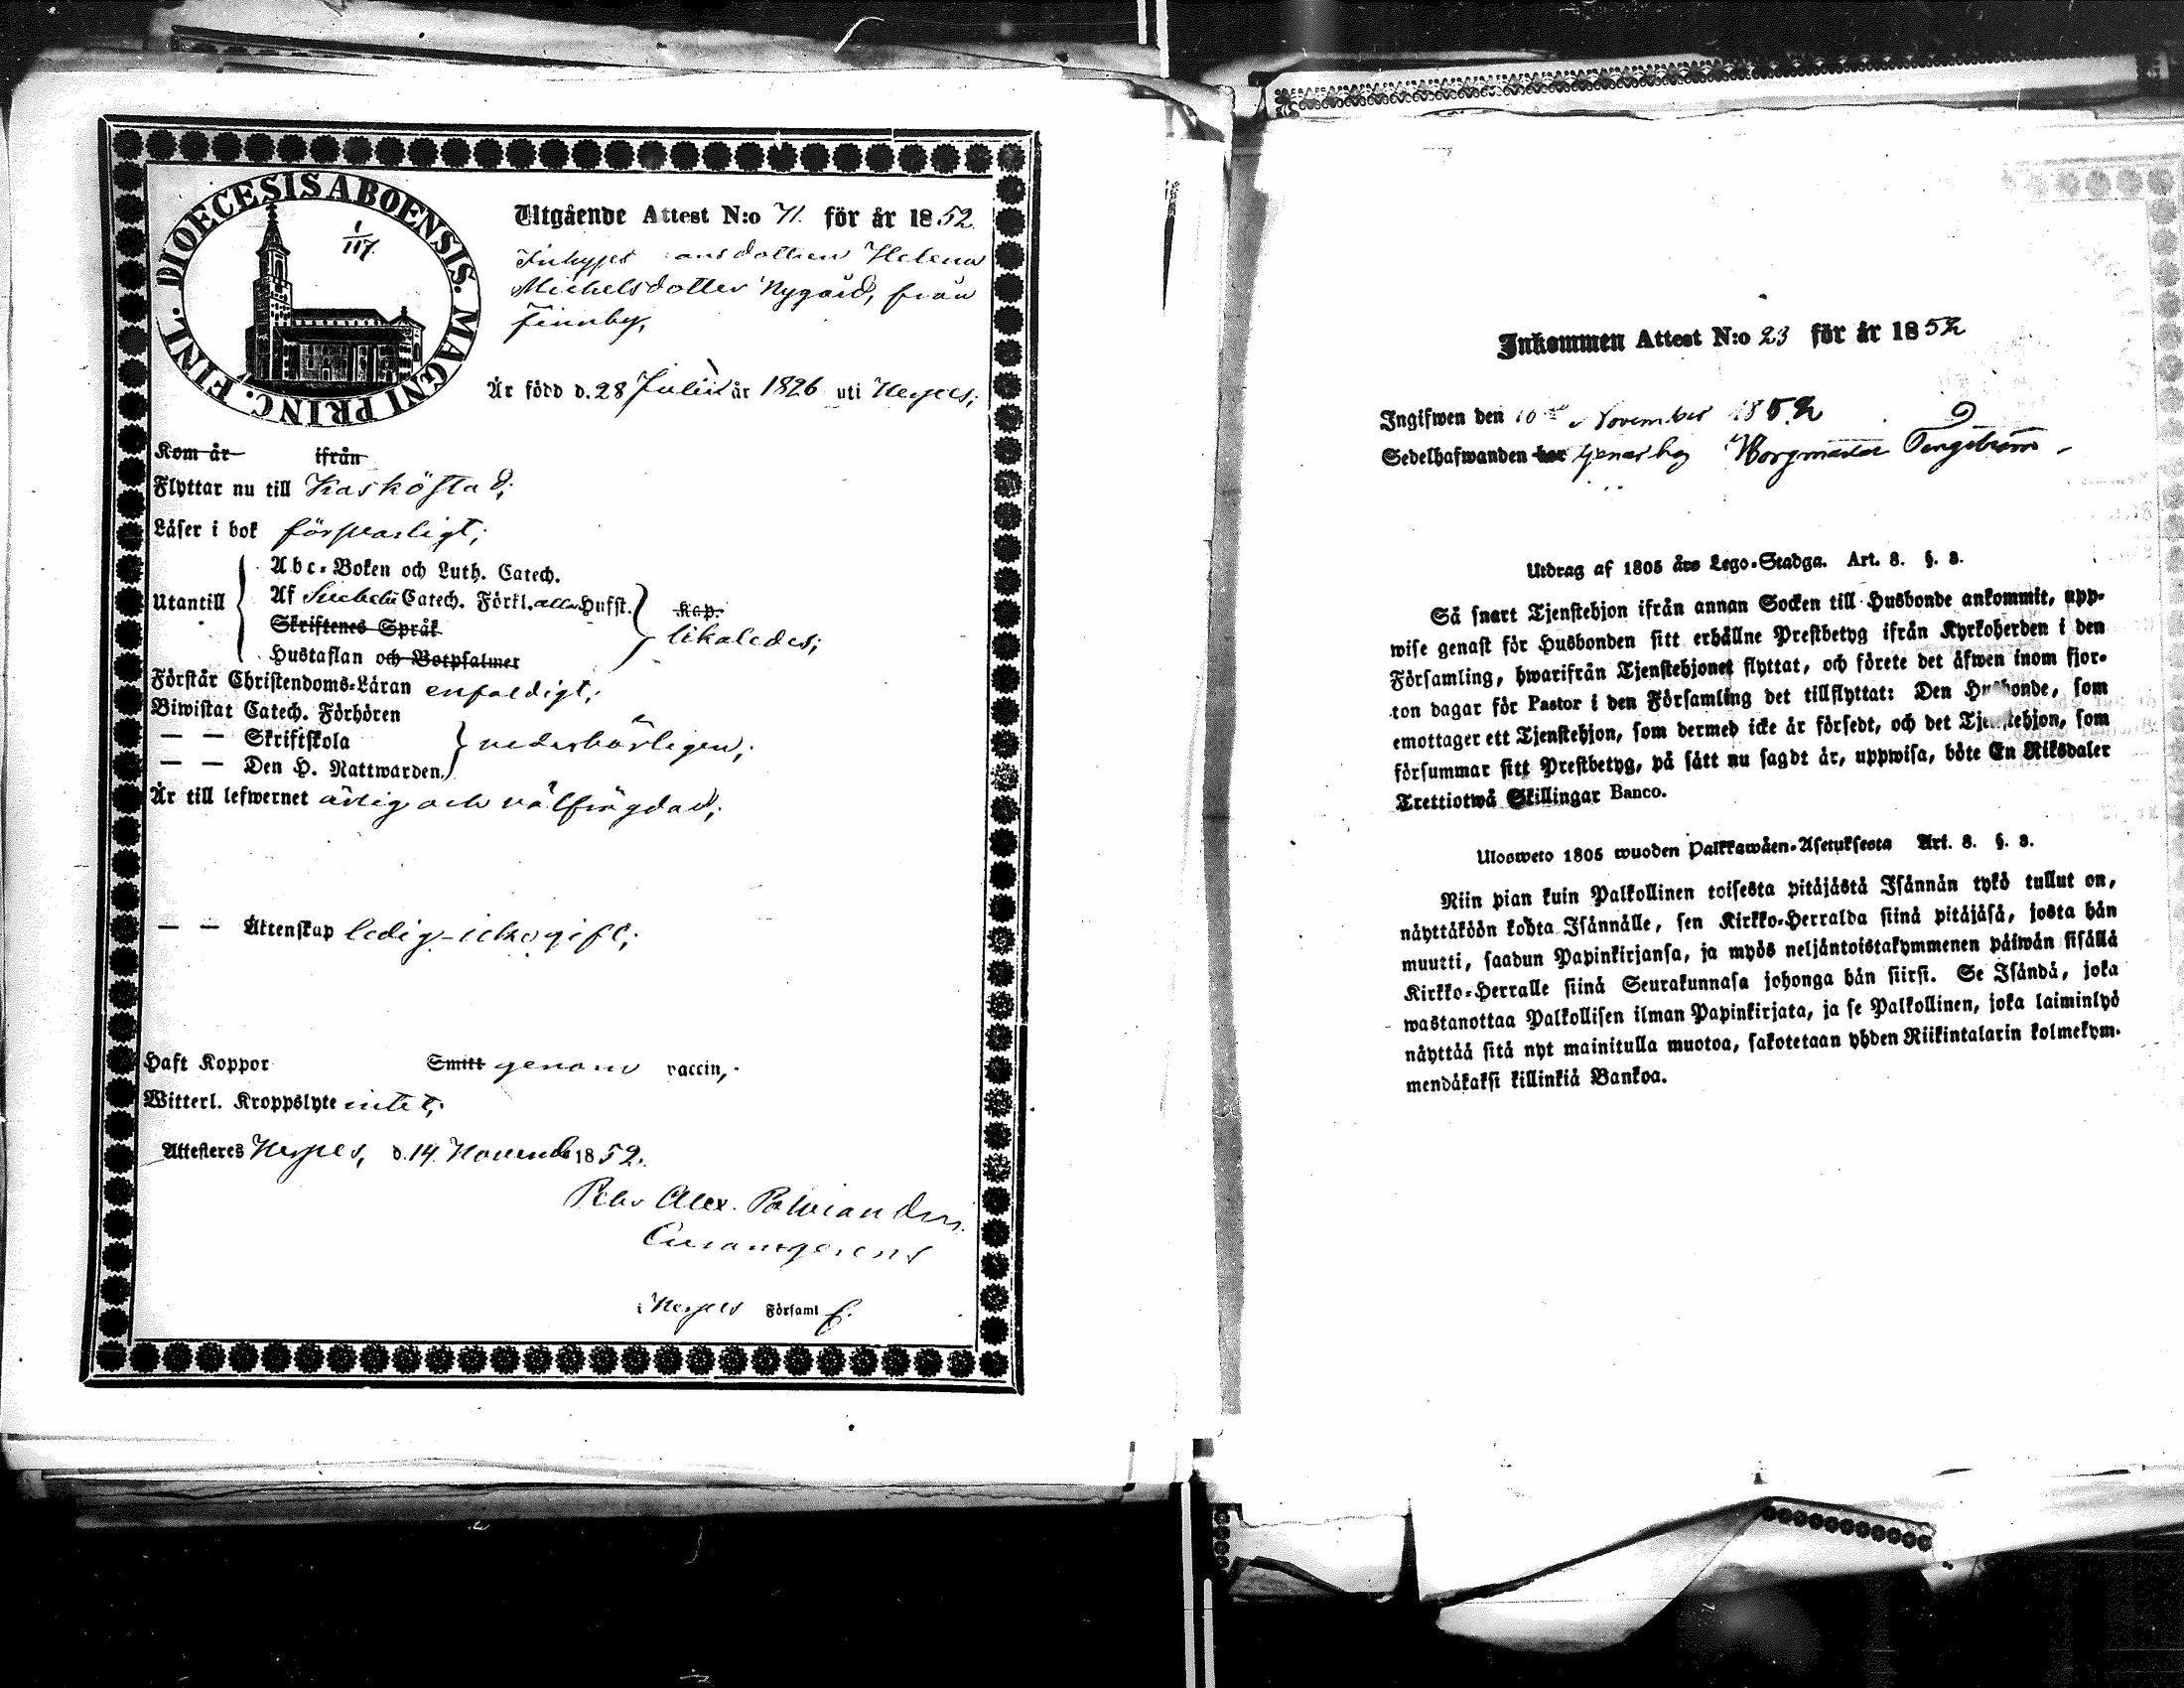 DIOECESIS ABOENSIS. MAGNI PRINC. FINL.
1
117.
Utgående Attest N:o 71. för år 1852.
Inhyses dottren Helena
Michelsdotter Nygård, från
Finnby,
Är född d. 28 Julii år 1826 uti Nerpes;
Kom år ifrån
Flyttar nu till Kaskö stad;
Läser i bok försvarligt;
Utantill
Abc-Boken och Luth. Catech.
Af Svebelii Catech. Förkl. alla Hufst.
Kap.
Skriftenes Språk
likaledes;
Hustaflan och Botpsalmer
Förstår Christendoms-Läran enfaldigt;
Biwistat Catech. Förhören
— — Skriftskola
vederbörligen;
— — Den H. Nattwarden
Är till lefwernet ärlig och välfrägdad;
— — Äktenskap ledig - icke gift;
Haft Koppor Smitt genom vaccin,
Witterl. Kroppslyte intet;
Attesteras Nerpes, d. 14 Novemb 1852.
Petr Alex.
Curamgerens
i Nerpes Församl
Inkommen Attest N:o 23 för år 1852
Ingifwen den 10 November 1852
Sedelhafwanden har tjenar hos Borgmästar Tengström
Utdrag af 1805 års Lego-Stadga. Art. 8. §. 3.
Så snart Tjenstehjon ifrån annan Socken till Husbonde ankommit, upp-
wise genast för Husbonden sitt erhållne Prestbetyg ifrån Kyrkoherden i den
Församling, hwarifrån Tjenstehjonet flyttat, och förete det äfwen inom fjor-
ton dagar för Pastor i den Församling det tillflyttat: Den Husbonde, som
emottager ett Tjenstehjon, som dermed icke är försedt, och det Tjenstehjon, som
försummar sitt Prestbetyg, på sätt nu sagdt är, uppwisa, böte En Riksdaler
Trettiotwå Skillingar Banco.
Ulosweto 1805 wuoden Palkkawäen-Asetuksesta Art. 8. §. 3.
Niin pian kuin Palkollinen toisesta pitäjästä Isännän tykö tullut on,
näyttäköön kohta Isännälle, sen Kirkko-Herralda siinä pitäjäsä, josta hän
muutti, saadun Papinkirjansa, ja myös neljäntoistakymmenen päiwän sisällä
Kirkko-Herralle siinä Seurakunnasa johonga hän siirsi. Se Isändä, joka
wastanottaa Palkollisen ilman Papinkirjata, ja se Palkollinen, joka laiminlyö
näyttää sitä nyt mainitulla muotoa, sakotetaan yhden Riikintalarin kolmekym-
mendäkaksi killinkiä Bankoa.